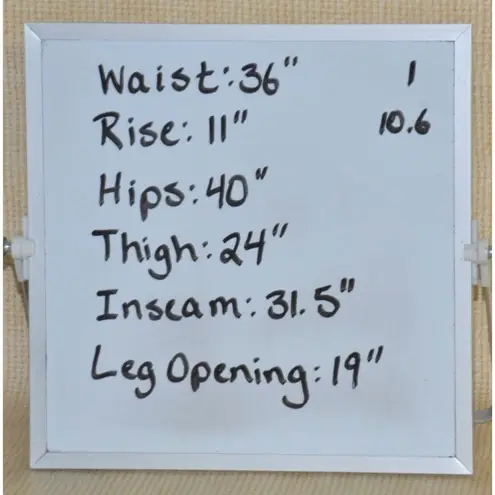 Waist: 36" 1
Rise: 11" 10.6
Hips: 40"
Thigh: 24"
Inseam: 31.5"
Leg Opening: 19"